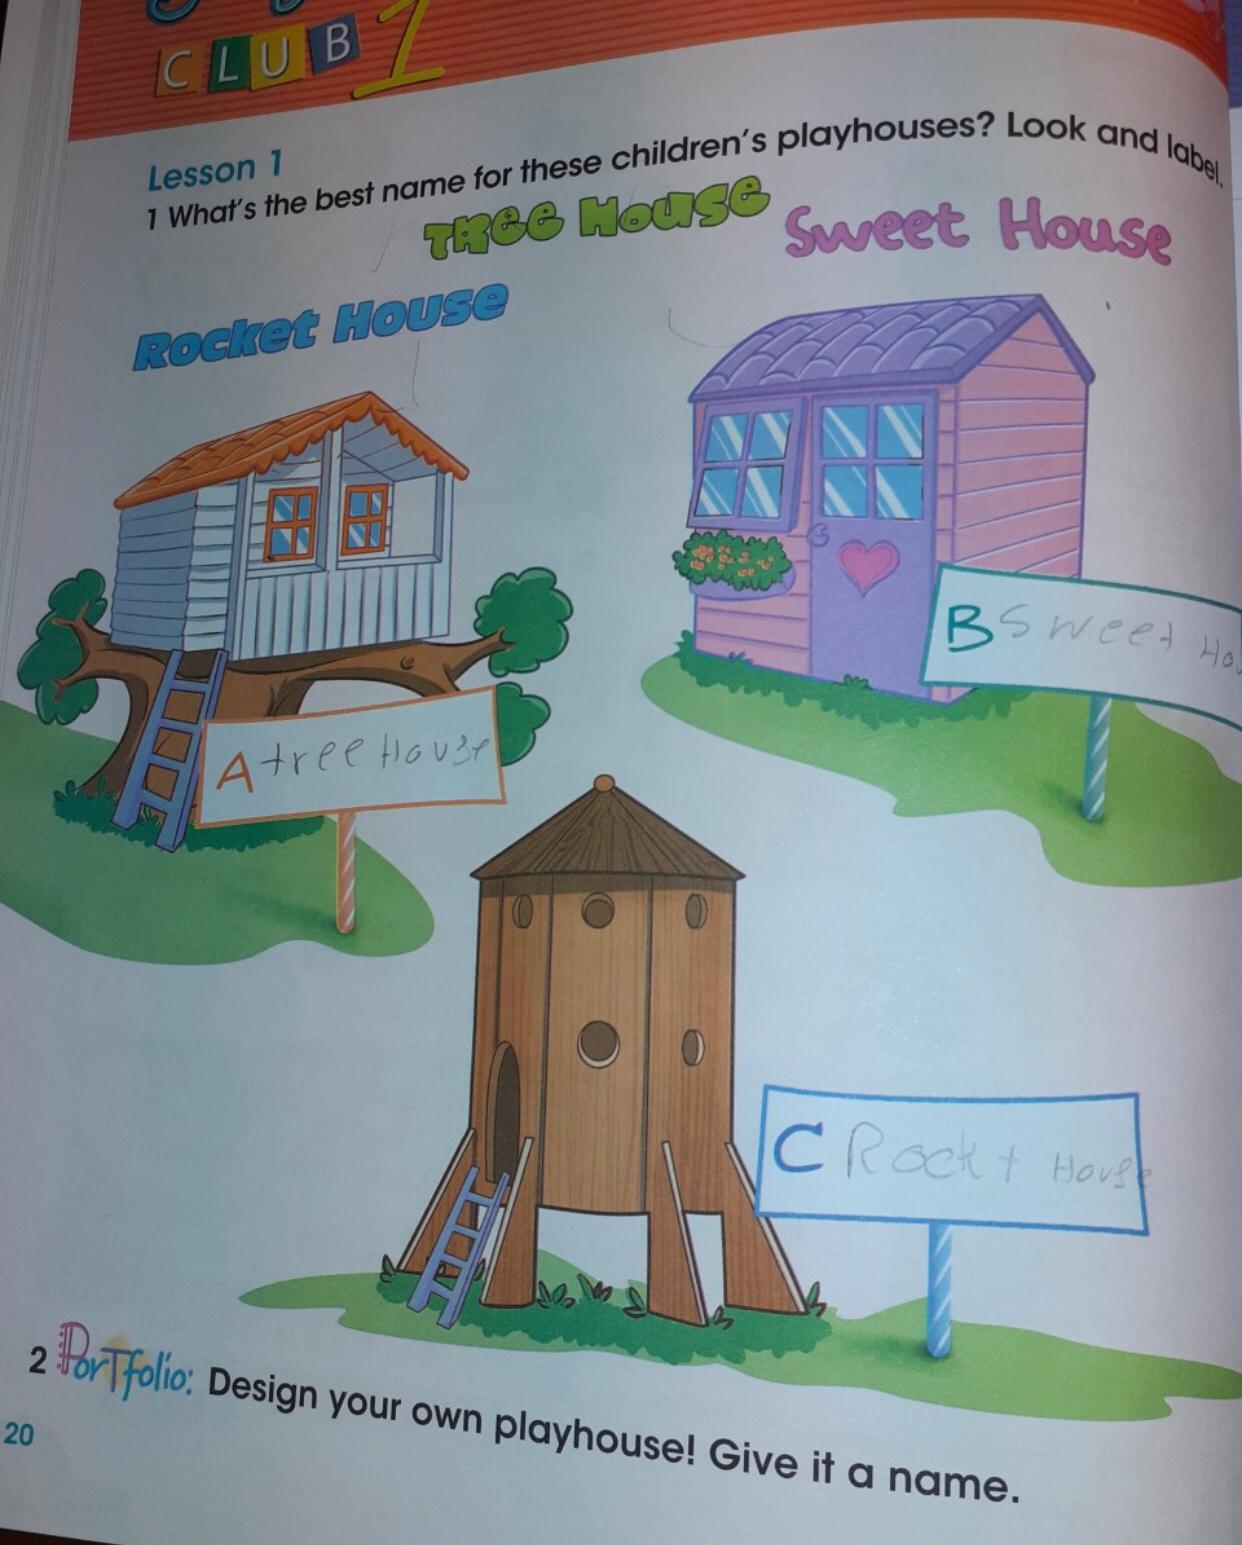 CLUB 1
Lesson 1
1 What's the best name for these children's playhouses? Look and label.
TREE HOUSE
Sweet House
Rocket House
B Sweet Ho
A tree House
C Rockt House
2 Portfolio: Design your own playhouse! Give it a name.
20